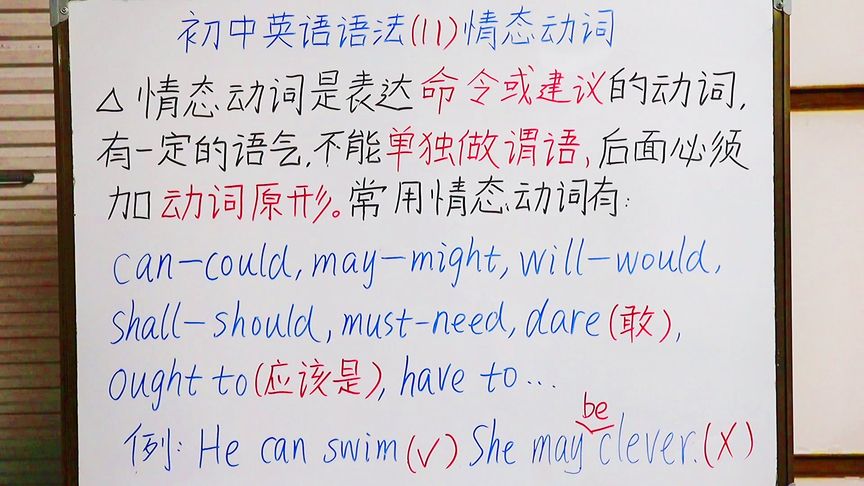 初中英语语法(11)情态动词
△情态动词是表达命令或建议的动词,
有一定的语气,不能单独做谓语,后面必须
加动词原形。常用情态动词有:
can—could, may—might, will—would,
shall—should, must-need, dare(敢),
ought to(应该是), have to…
be
例: He can swim(√) She may clever.(X)